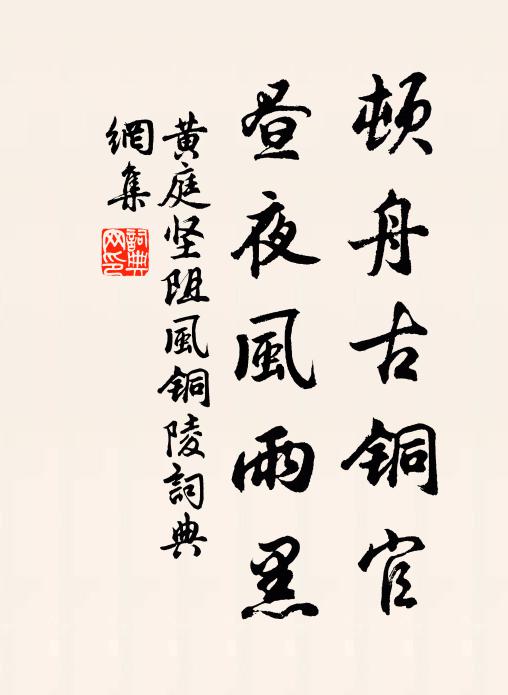 顿舟古铜官
昼夜風雨黑
黄庭坚阻風铜陵詞典
網集
詞典
网印